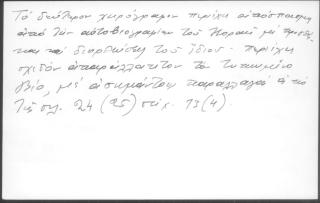 Τό δεύτερον χειρόγραφον περιέχει ἀπόσπασμα
ἀπό τήν αὐτοβιογραφίαν τοῦ Κοραῆ μέ προσθή-
κας καί διορθώσεις τοῦ ἰδίου. Περιέχει
σχεδόν ἀπαράλλακτον τό τυπωμένο
Βίο, μέ ἀσημάντους παραλλαγάς ἀπό
τῆς σελ. 24 (25) στίχ. 13 (4).